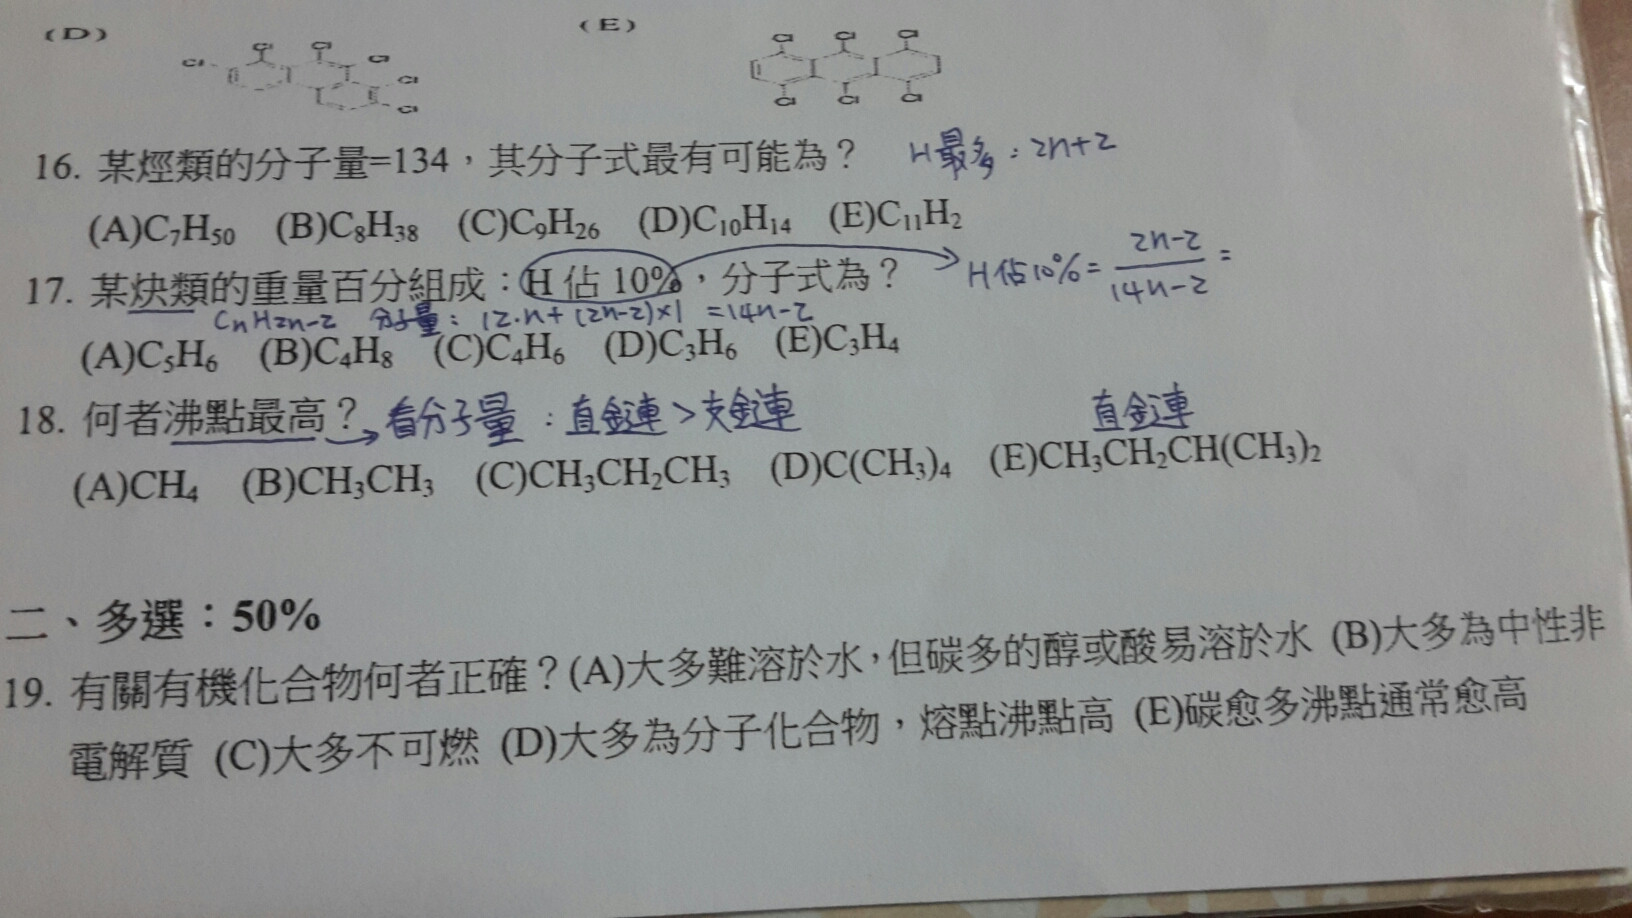 (D) (E)
Cl Cl Cl Cl Cl Cl
Cl Cl Cl Cl Cl Cl
16. 某烴類的分子量=134，其分子式最有可能為？ H最多：2n+2
(A)C₇H₅₀ (B)C₈H₃₈ (C)C₉H₂₆ (D)C₁₀H₁₄ (E)C₁₁H₂
17. 某炔類的重量百分組成：H 佔 10%，分子式為？ H佔10%= 2n-2 / 14n-2 =
CnH2n-2 分子量：12·n+(2n-2)×1 =14n-2
(A)C₅H₆ (B)C₄H₈ (C)C₄H₆ (D)C₃H₆ (E)C₃H₄
18. 何者沸點最高？→看分子量：直鏈>支鏈 直鏈
(A)CH₄ (B)CH₃CH₃ (C)CH₃CH₂CH₃ (D)C(CH₃)₄ (E)CH₃CH₂CH(CH₃)₂
二、多選：50%
19. 有關有機化合物何者正確？(A)大多難溶於水，但碳多的醇或酸易溶於水 (B)大多為中性非
電解質 (C)大多不可燃 (D)大多為分子化合物，熔點沸點高 (E)碳愈多沸點通常愈高